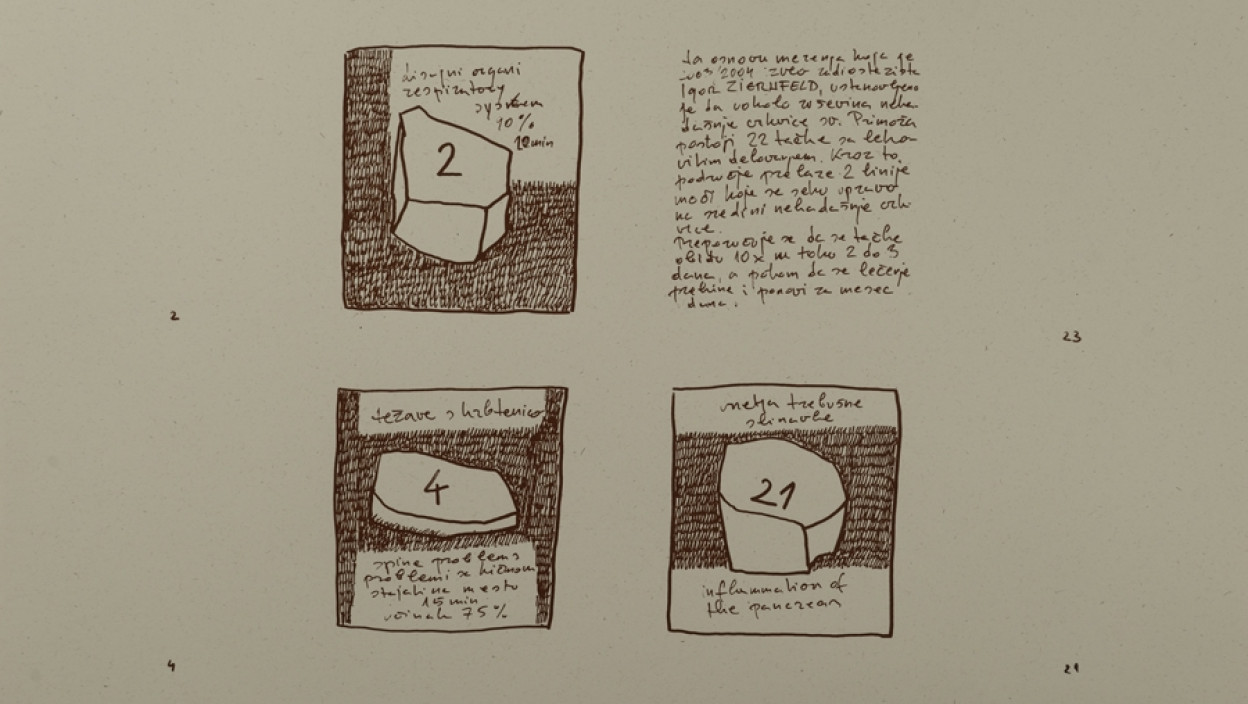 disajni organi
respiratory
system
10%
12min
2
2
Na osnovu merenja koja je
još 2004 radiestezista
Igor ZIERNFELD, ustanovljeno
je da okolo neka-
dašnje crkvice sv. Primoža
postoji 22 tačke sa lekovitim delovanjem. Kroz to
područje prelaze 2 linije
moći koje se seku upravo
na sredini nekadašnje crk-
vice.
Preporučuje se da se tačke
obidu 10x u toku 2 do 3
dana, a potom da se lečenje
prekine i ponovi za mesec
dana.
23
težave s hrbtenico
4
spine problems
problemi sa kičmom
stajati na mestu
15 min
učinak 75%
4
vnetja trebušne
slinavke
21
inflammation of
the pancreas
21